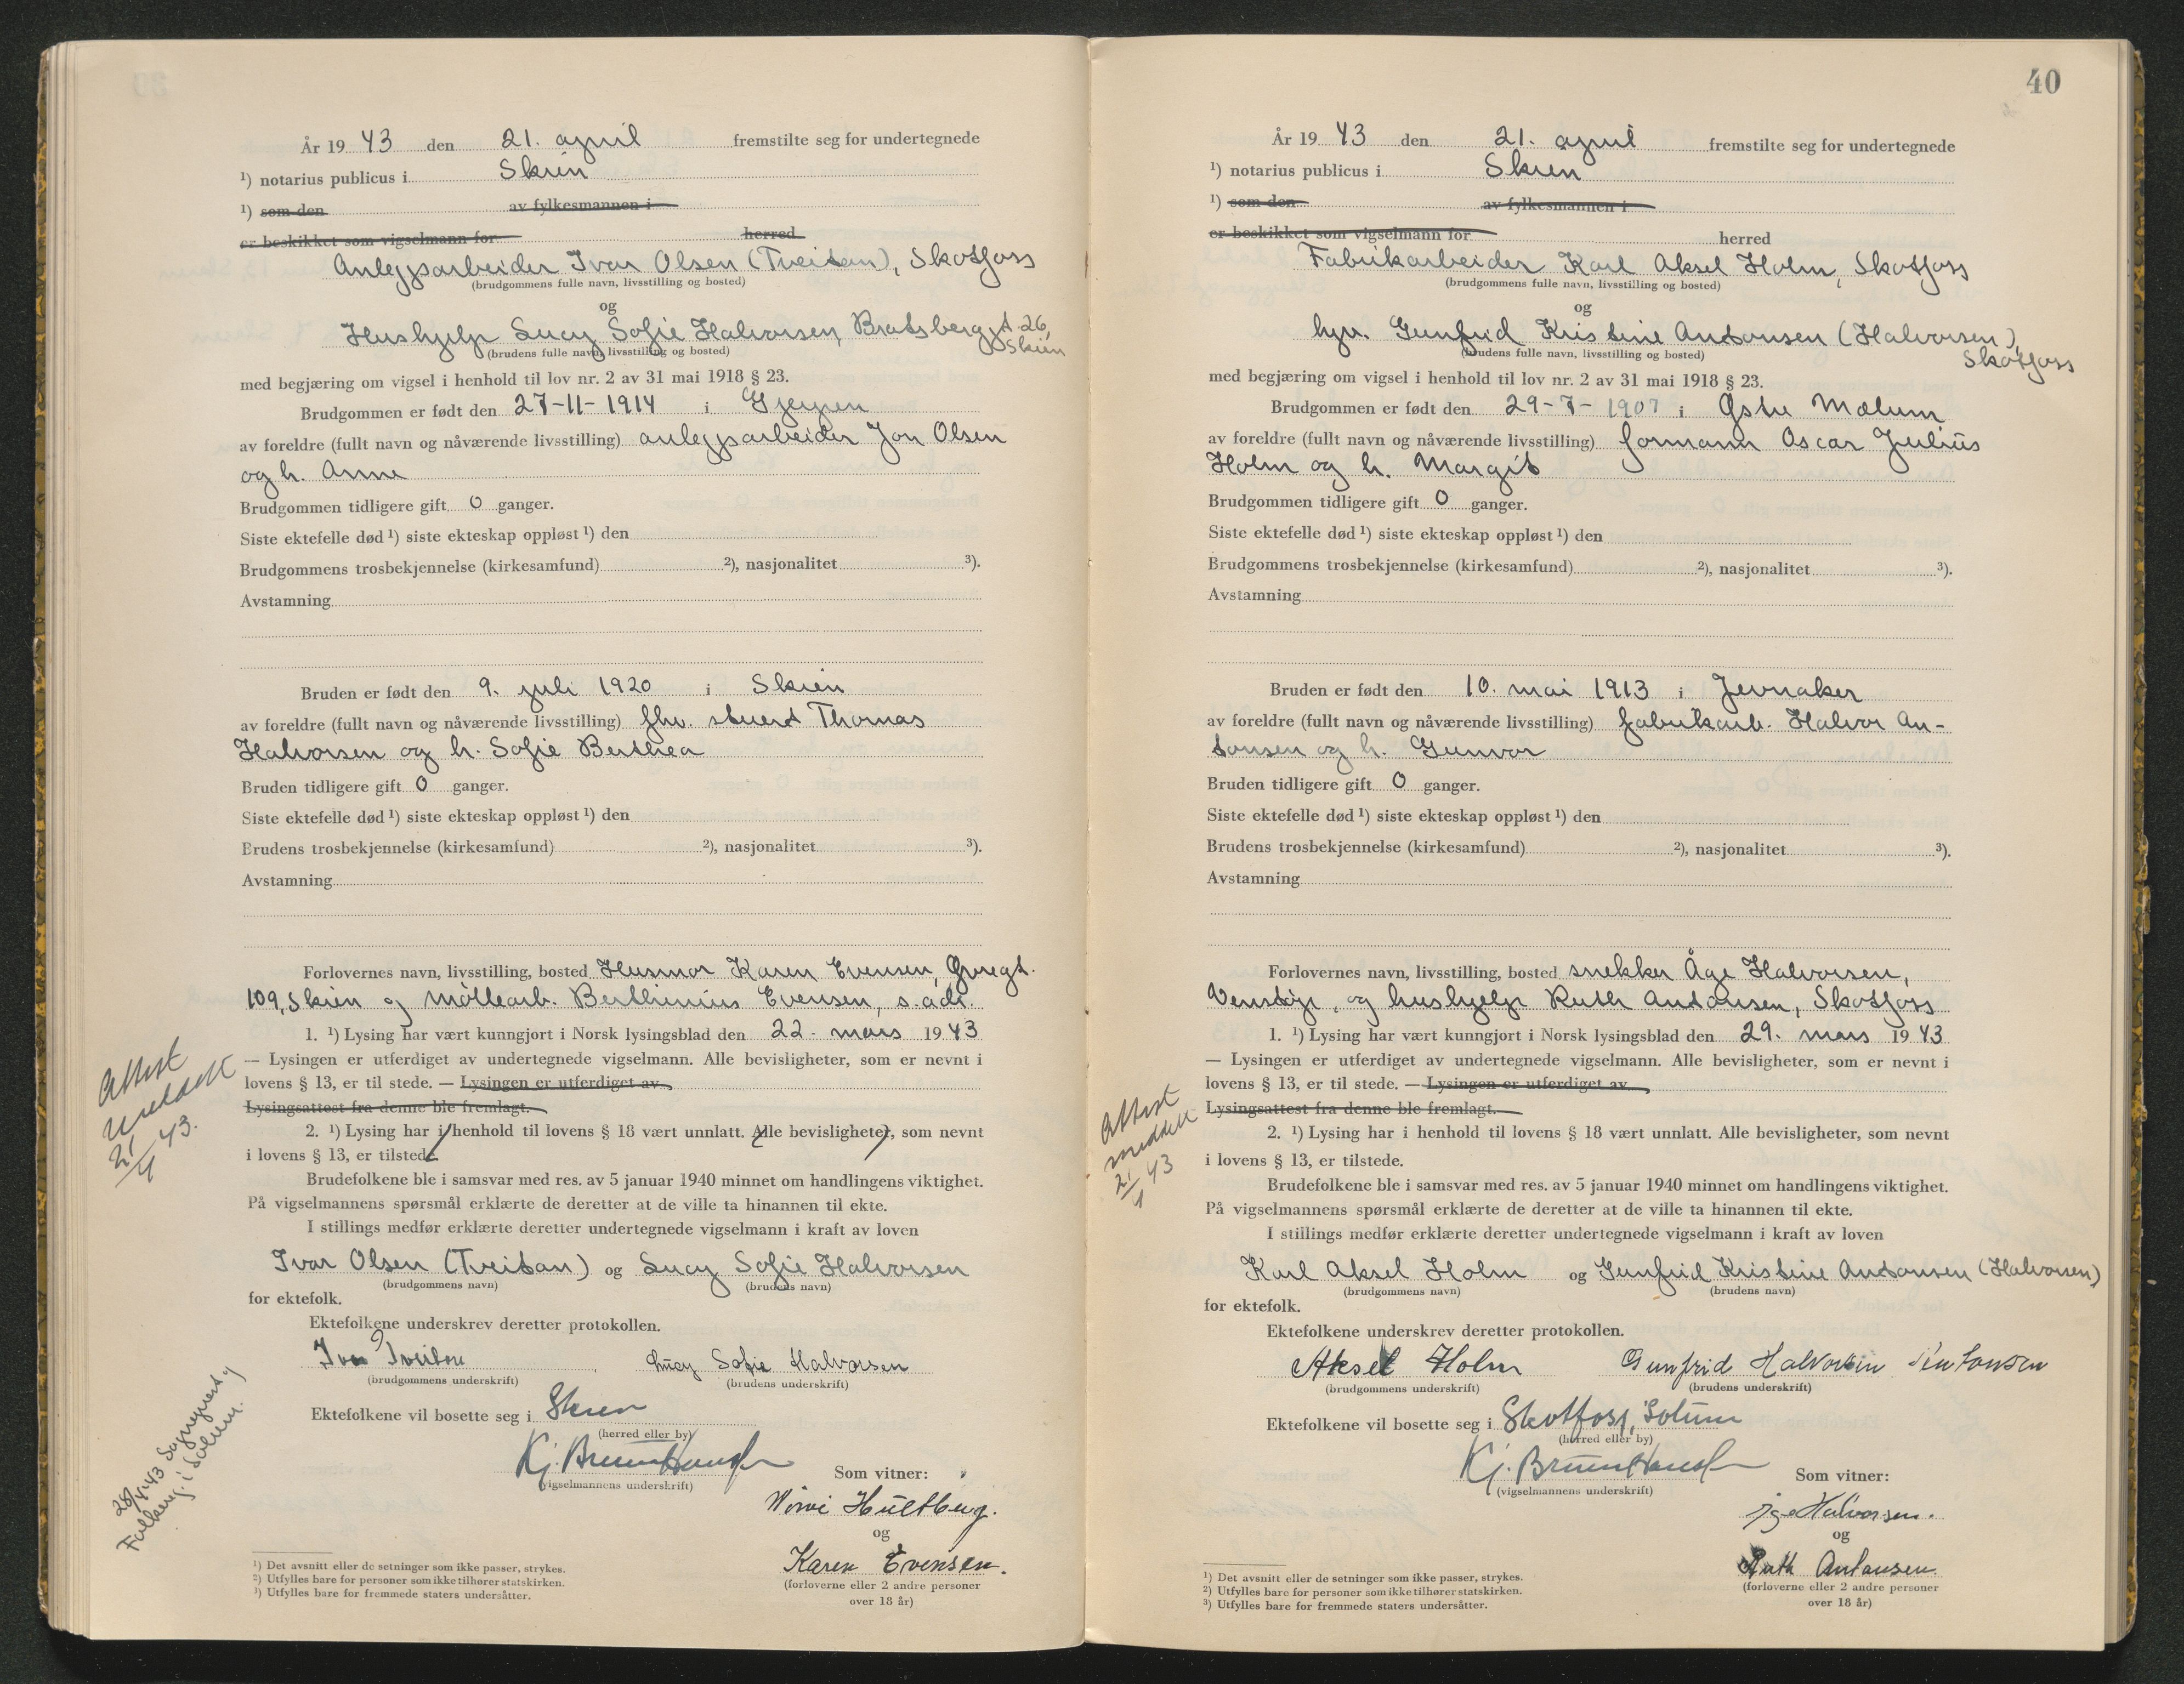 År 19 43 den 21. april fremstilte seg for undertegnede
¹) notarius publicus i Skien
¹) som den av fylkesmannen i
er beskikket som vigselmann for herred
Anleggsarbeider Ivar Olsen (Tveitan), Skotfoss
(brudgommens fulle navn, livsstilling og bosted)
og
Hushjelp Lucy Sofie Halvorsen, Bratsberggt. 26,
Skien
(brudens fulle navn, livsstilling og bosted)
med begjæring om vigsel i henhold til lov nr. 2 av 31 mai 1918 § 23.
Brudgommen er født den 27-11-1914 i Gjerpen
av foreldre (fullt navn og nåværende livsstilling) anleggsarbeider Jon Olsen
og h. Anne
Brudgommen tidligere gift 0 ganger.
Siste ektefelle død ¹) siste ekteskap oppløst ¹) den
Brudgommens trosbekjennelse (kirkesamfund) ²), nasjonalitet ³).
Avstamning
Bruden er født den 9. juli 1920 i Skien
av foreldre (fullt navn og nåværende livsstilling) fhv. stuert Thomas
Halvorsen og h. Sofie Berthea
Bruden tidligere gift 0 ganger.
Siste ektefelle død ¹) siste ekteskap oppløst ¹) den
Brudens trosbekjennelse (kirkesamfund) ²), nasjonalitet ³).
Avstamning
Forlovernes navn, livsstilling, bosted Husmor Karen Evensen,
109, Skien og møllearb. Berthinius Evensen, s. adr.
1. ¹) Lysing har vært kunngjort i Norsk lysingsblad den 22. mars 19 43
— Lysingen er utferdiget av undertegnede vigselmann. Alle bevisligheter, som er nevnt i
lovens § 13, er til stede. — Lysingen er utferdiget av
Lysingsattest fra denne ble fremlagt.
2. ¹) Lysing har i henhold til lovens § 18 vært unnlatt. Alle bevisligheter, som nevnt
i lovens § 13, er tilstede.
Brudefolkene ble i samsvar med res. av 5 januar 1940 minnet om handlingens viktighet.
På vigselmannens spørsmål erklærte de deretter at de ville ta hinannen til ekte.
I stillings medfør erklærte deretter undertegnede vigselmann i kraft av loven
Ivar Olsen (Tveitan) og Lucy Sofie Halvorsen
(brudgommens navn) (brudens navn)
for ektefolk.
Ektefolkene underskrev deretter protokollen.
Ivar Tveitan Lucy Sofie Halvorsen
(brudgommens underskrift) (brudens underskrift)
Ektefolkene vil bosette seg i Skien
(herred eller by)
Kj. Bruun Hansen
(vigselmannens underskrift)
Som vitner:
Hultberg.
og
Karen Evensen.
(forloverne eller 2 andre personer
over 18 år)
¹) Det avsnitt eller de setninger som ikke passer, strykes.
²) Utfylles bare for personer som ikke tilhører statskirken.
³) Utfylles bare for fremmede staters undersåtter.
Attest
meddelt
21/4 43.
28/4 43 Sogneprest og
Folkereg. i Solum.
40
År 19 43 den 21. april fremstilte seg for undertegnede
¹) notarius publicus i Skien
¹) som den av fylkesmannen i
er beskikket som vigselmann for herred
Fabrikarbeider Karl Aksel Holm, Skotfoss
(brudgommens fulle navn, livsstilling og bosted)
og
hju. Gunfrid Kristine Antonsen (Halvorsen),
Skotfoss
(brudens fulle navn, livsstilling og bosted)
med begjæring om vigsel i henhold til lov nr. 2 av 31 mai 1918 § 23.
Brudgommen er født den 29-7-1907 i Østre Mælum
av foreldre (fullt navn og nåværende livsstilling) formann Oscar Julius
Holm og h. Margit
Brudgommen tidligere gift 0 ganger.
Siste ektefelle død ¹) siste ekteskap oppløst ¹) den
Brudgommens trosbekjennelse (kirkesamfund) ²), nasjonalitet ³).
Avstamning
Bruden er født den 10. mai 1913 i Jevnaker
av foreldre (fullt navn og nåværende livsstilling) fabrikarb. Halvor An-
tonsen og h. Gunvor
Bruden tidligere gift 0 ganger.
Siste ektefelle død ¹) siste ekteskap oppløst ¹) den
Brudens trosbekjennelse (kirkesamfund) ²), nasjonalitet ³).
Avstamning
Forlovernes navn, livsstilling, bosted snekker Åge Halvorsen,
Venstøp, og hushjelp Ruth Antonsen, Skotfoss
1. ¹) Lysing har vært kunngjort i Norsk lysingsblad den 29. mars 19 43
— Lysingen er utferdiget av undertegnede vigselmann. Alle bevisligheter, som er nevnt i
lovens § 13, er til stede. — Lysingen er utferdiget av
Lysingsattest fra denne ble fremlagt.
2. ¹) Lysing har i henhold til lovens § 18 vært unnlatt. Alle bevisligheter, som nevnt
i lovens § 13, er tilstede.
Brudefolkene ble i samsvar med res. av 5 januar 1940 minnet om handlingens viktighet.
På vigselmannens spørsmål erklærte de deretter at de ville ta hinannen til ekte.
I stillings medfør erklærte deretter undertegnede vigselmann i kraft av loven
Karl Aksel Holm og Gunfrid Kristine Antonsen (Halvorsen)
(brudgommens navn) (brudens navn)
for ektefolk.
Ektefolkene underskrev deretter protokollen.
Aksel Holm Gunfrid Halvorsen Antonsen
(brudgommens underskrift) (brudens underskrift)
Ektefolkene vil bosette seg i Skotfoss, Solum
(herred eller by)
Kj. Bruun Hansen
(vigselmannens underskrift)
Som vitner:
Åge Halvorsen.
og
Ruth Antonsen.
(forloverne eller 2 andre personer
over 18 år)
¹) Det avsnitt eller de setninger som ikke passer, strykes.
²) Utfylles bare for personer som ikke tilhører statskirken.
³) Utfylles bare for fremmede staters undersåtter.
Attest
meddelt
21/4 43